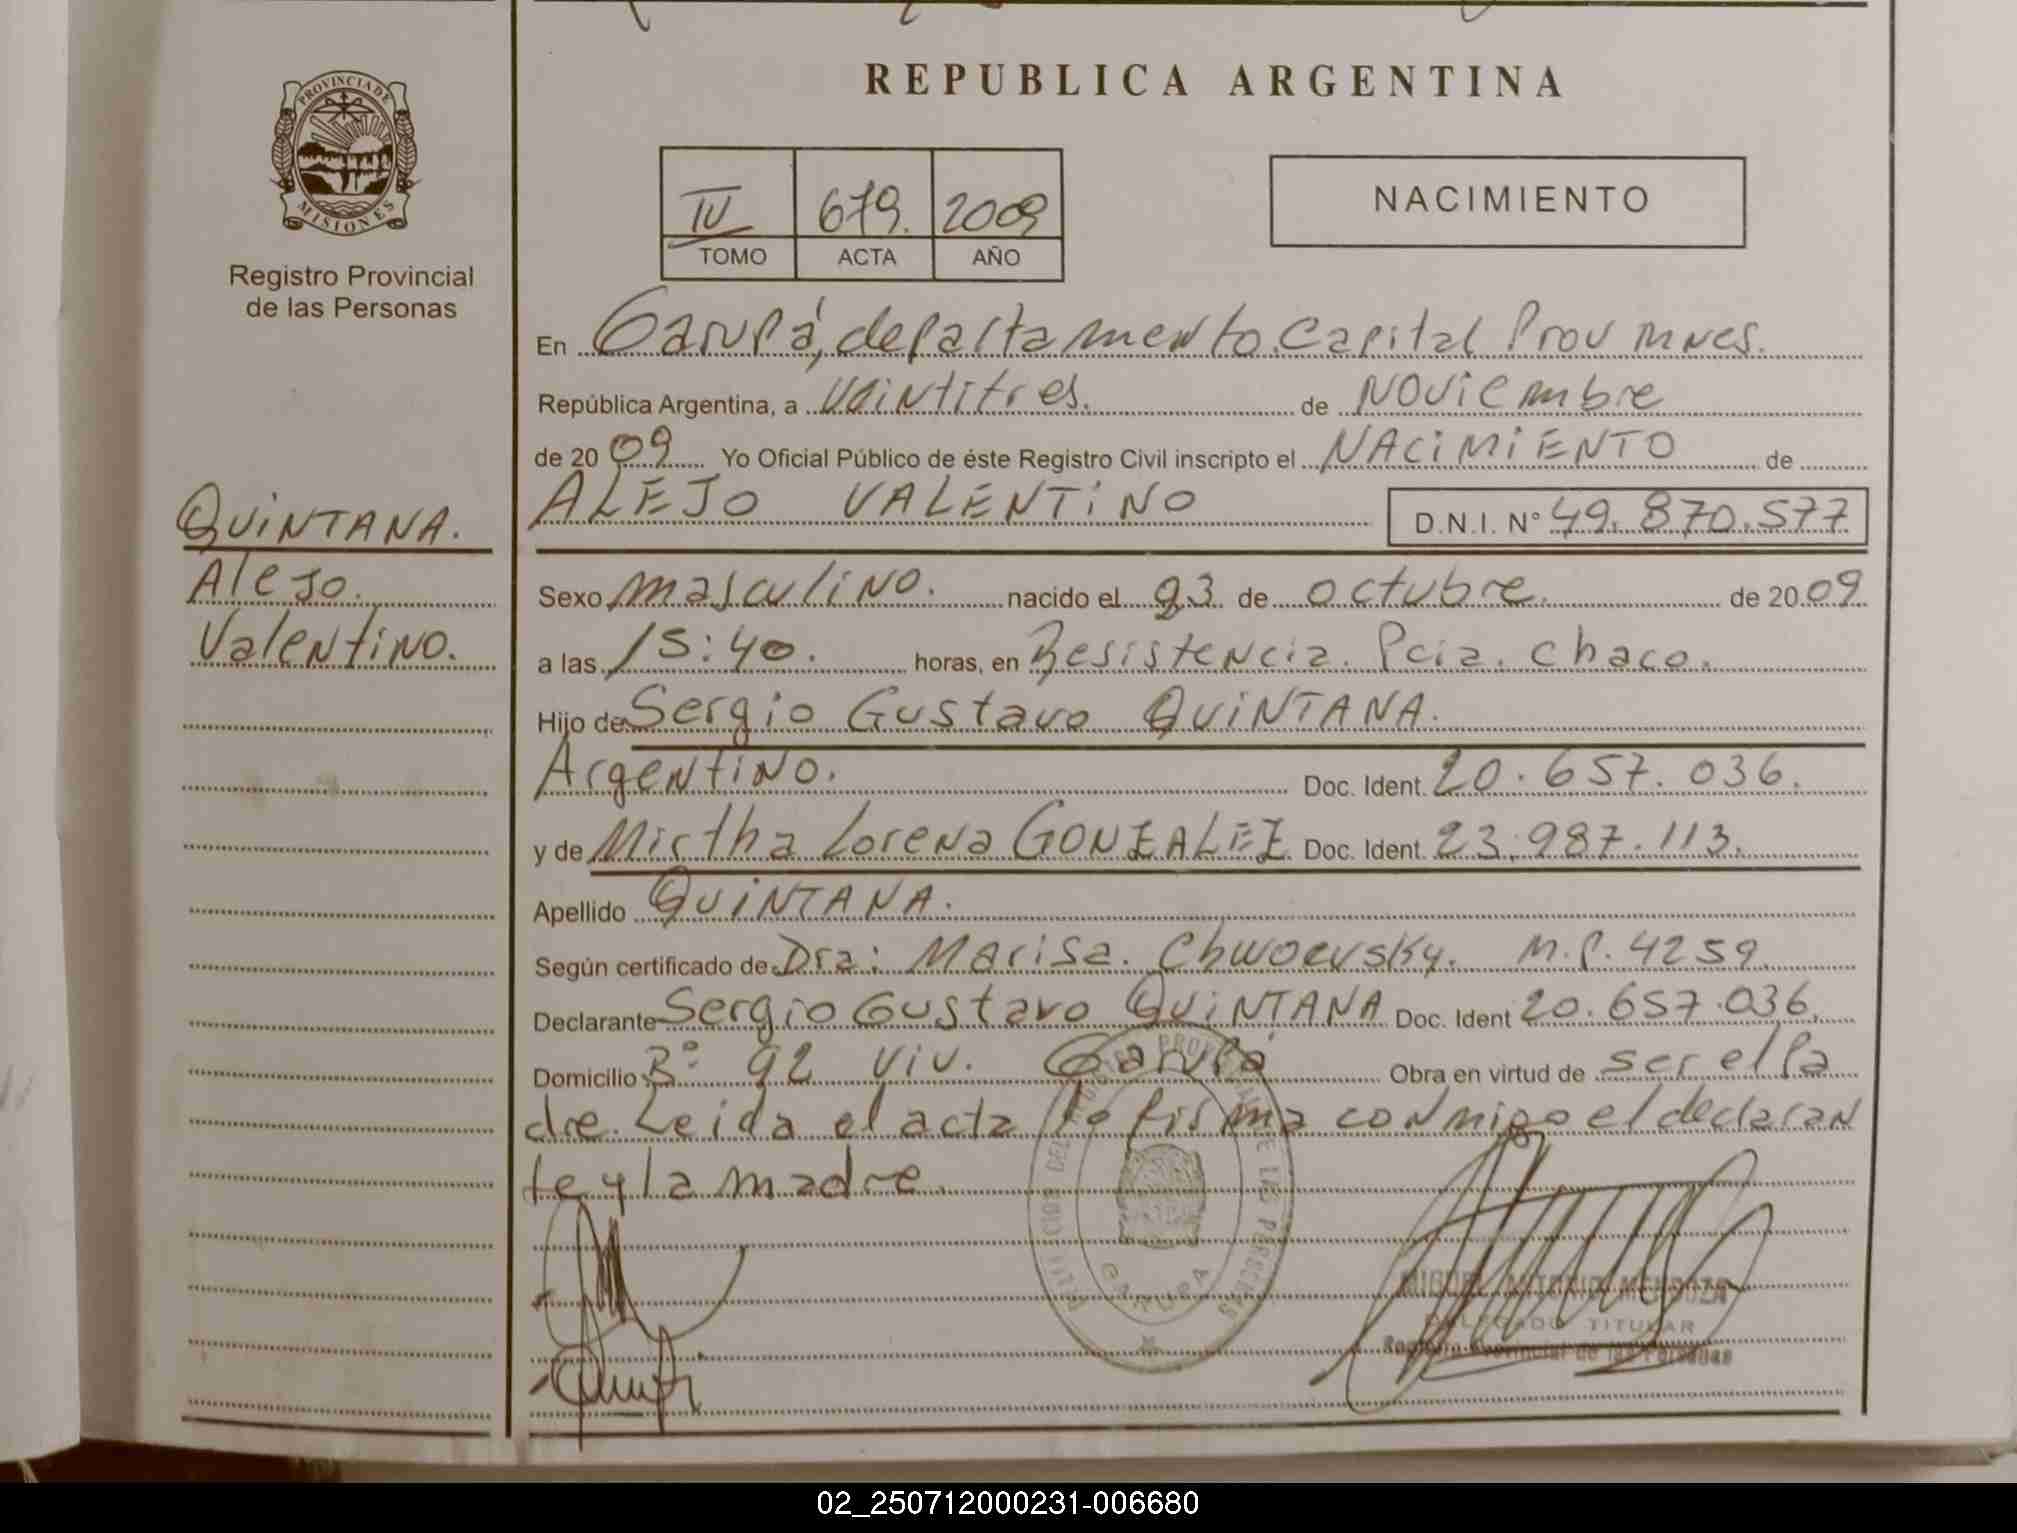 REPUBLICA ARGENTINA
PROVINCIA DE
MISIONES
Registro Provincial
de las Personas
IV 679. 2009
TOMO ACTA AÑO
NACIMIENTO
En Garupá, departamento Capital Prov Mnes.
República Argentina, a Veintitres. de Noviembre
de 2009 Yo Oficial Público de éste Registro Civil inscripto el NACIMIENTO de
ALEJO VALENTINO D.N.I. N° 49.870.577
QUINTANA.
Alejo.
Valentino.
Sexo masculino. nacido el 23 de octubre. de 2009
a las 15:40. horas, en Resistencia. Pcia. Chaco.
Hijo de Sergio Gustavo QUINTANA.
Argentino. Doc. Ident. 20.657.036.
y de Mirtha Lorena GONZALEZ Doc. Ident. 23.987.113.
Apellido QUINTANA.
Según certificado de Dra: Marisa. M.P. 4259.
Declarante Sergio Gustavo QUINTANA Doc. Ident 20.657.036.
Domicilio B° 92 Viv. Garupá Obra en virtud de ser el Pa
dre. Leida el acta lo firma conmigo el declaran
te y la madre.
GARUPA
MIGUEL ANTONIO MENDOZA
DELEGADO TITULAR
Registro Provincial de las Personas
02_250712000231-006680